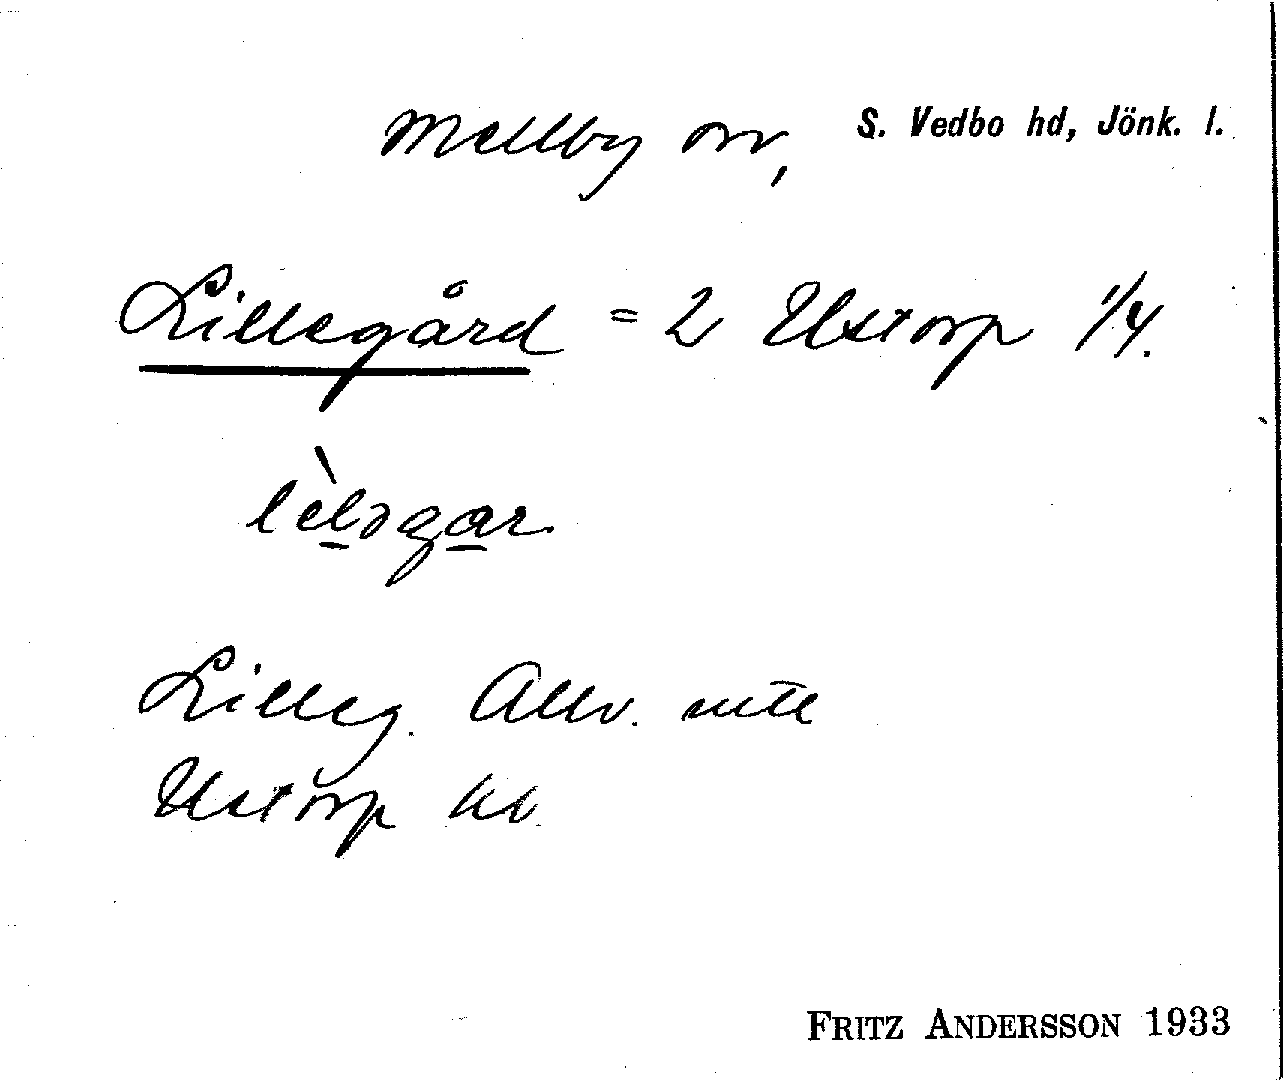 Mellby sn, S. Vedbo hd, Jönk. l.
Lillegård = 2 Ustorp 1/4.
lèləgar
Lilleg. Allm. inte
Ustorp
FRITZ ANDERSSON 1933